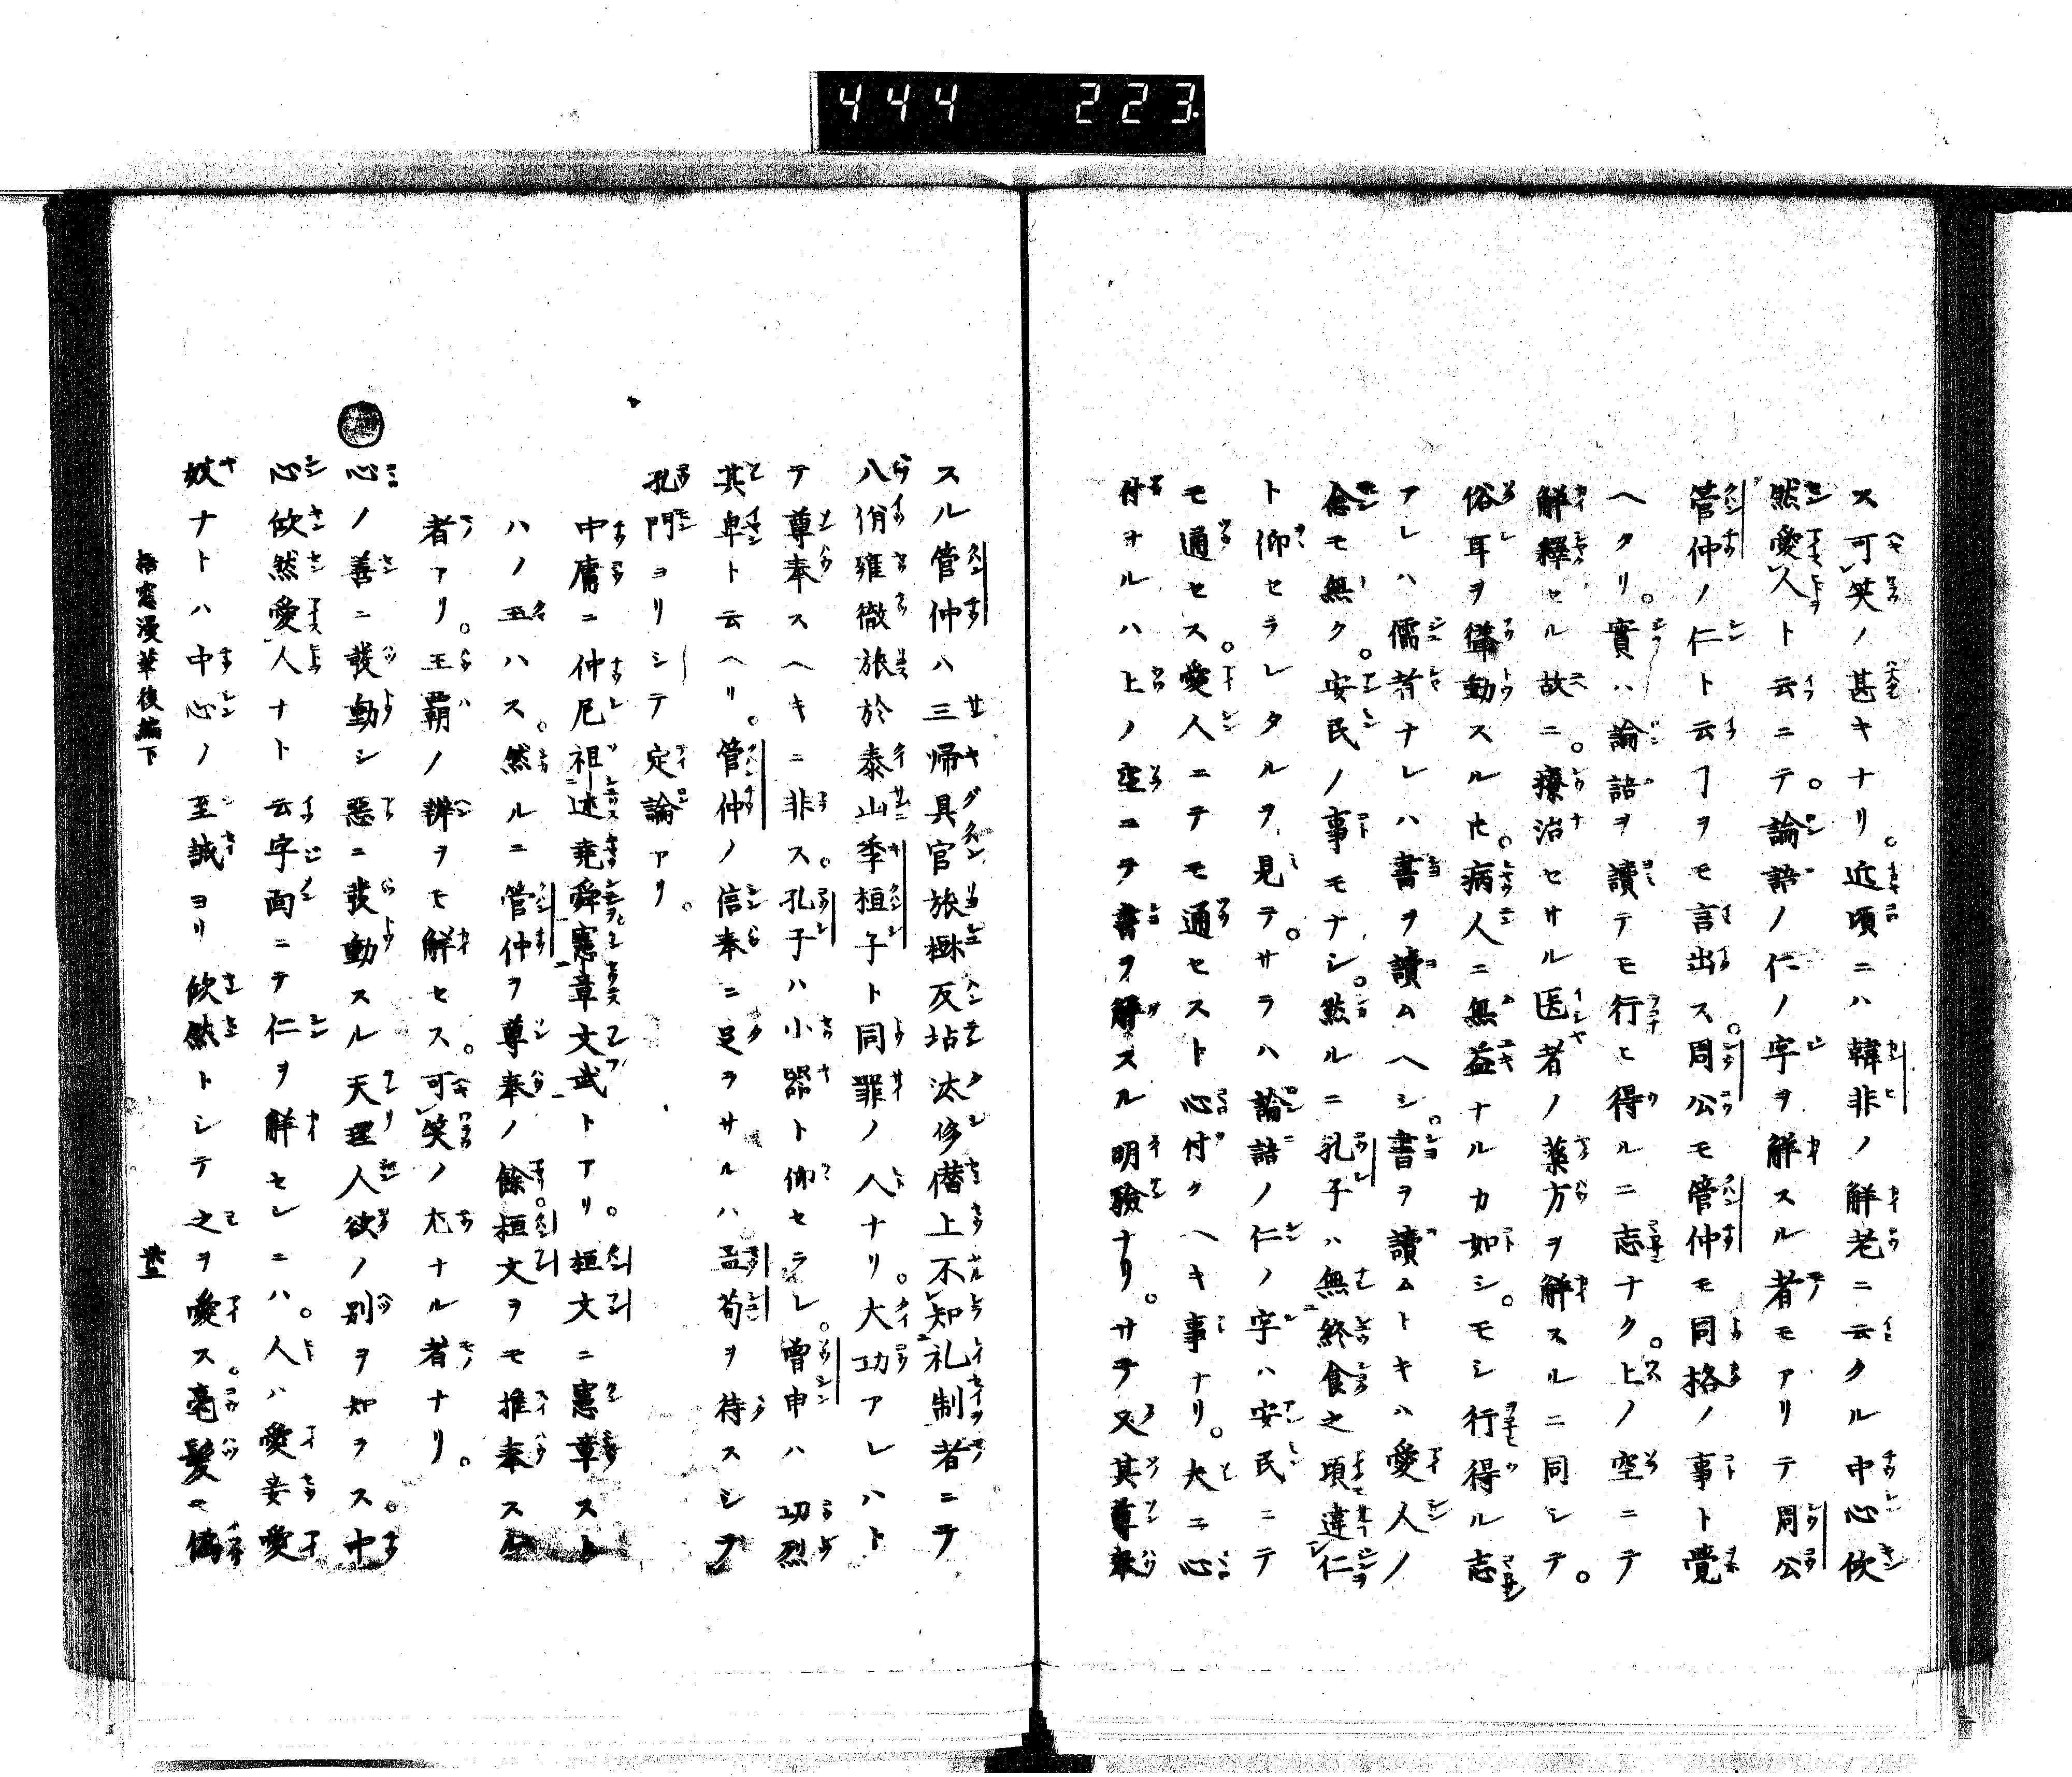 444 223
ス可笑ノ甚キナリ。近頃ニハ韓非ノ解老ニ云クル中心欣
然愛人ト云ニテ。論語ノ仁ノ字ヲ解スル者モアリテ周公
管仲ノ仁ト云ヿヲモ言出ス。周公モ管仲モ同格ノ事ト覺
ヘタリ。實ハ論語ヲ讀テモ行ヒ得ルニ志ナク。上ノ空ニテ
解釋セル故ニ。療治セサル医者ノ藥方ヲ解スルニ同シテ。
俗耳ヲ聳動スルㇳモ。病人ニ無益ナルカ如シ。モシ行得ル志
アレハ儒者ナレハ書ヲ讀ムヘシ。書ヲ讀ムトキハ愛人ノ
念モ無ク。安民ノ事モナシ。然ルニ孔子ハ無終食之頃違仁
ト仰セラレタルヲ見テ。サラハ論語ノ仁ノ字ハ安民ニテ
モ通セス。愛人ニテモ通セスト心付クヘキ事ナリ。夫ニ心
付ヲルハ上ノ空ニテ書ヲ解スル明驗ナリ。サテ又其尊奉
スル管仲ハ三帰具官旅樹反坫汰侈僭上不知礼制者ニテ
八佾雍徹旅於泰山季桓子ト同罪ノ人ナリ。大功アレハト
テ尊奉スヘキニ非ス。孔子ハ小器ト仰セラレ。曽申ハ功烈
其卑ト云ヘリ。管仲ノ信奉ニ足ラサルハ。孟荀ヲ待スシテ
孔門ヨリシテ定論アリ。
中庸ニ仲尼祖述堯舜憲章文武トアリ。桓文ニ憲章スト
ハノ玉ハス。然ルニ管仲ヲ尊奉ノ餘。桓文ヲモ推奉スル
者アリ。王霸ノ辨ヲモ解セス。可笑ノ尤ナル者ナリ。
心ノ善ニ發動シ惡ニ發動スル天理人欲ノ別ヲ知ラス。中
心欣然愛人ナト云字面ニテ仁ヲ解セレニハ。人ハ愛妾愛
妓ナトハ中心ノ至誠ヨリ欣然トシテ之ヲ愛ス。毫髮モ僞
梧窓漫筆後編下